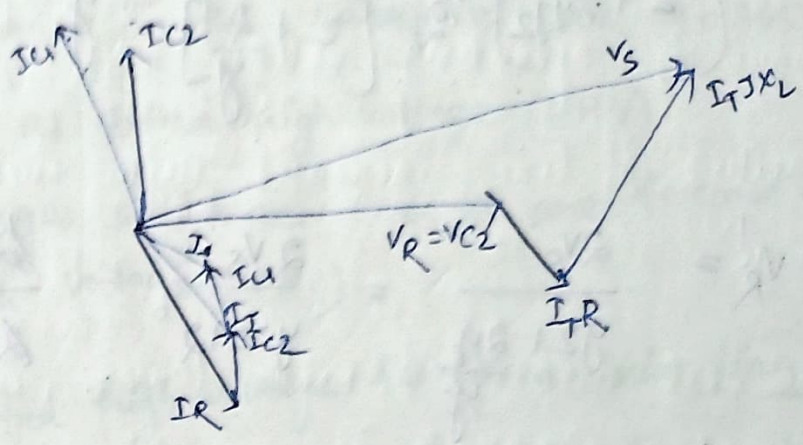 IC1
IC2
VS
ITJXL
VR=VC2
ITR
IS
IC1
II
IC2
IR